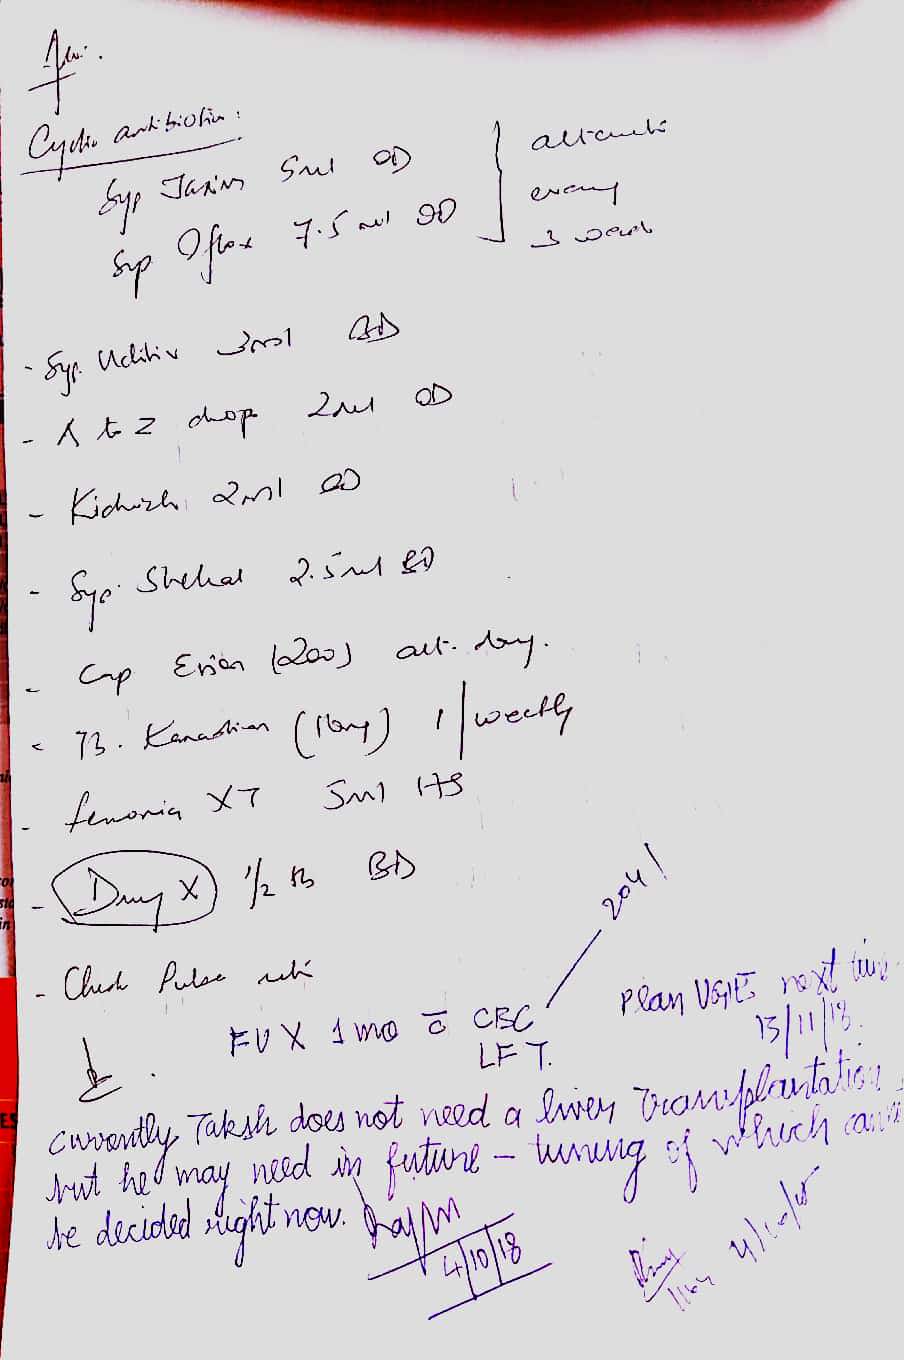 Adv.
Cyclic antibiotics:
Syp Taxim 5ml OD
Syp Oflox 7.5 ml OD
alternate
every
3 week
- Syp. Udiliv 3ml BD
- A to Z drop 2ml OD
- Kidrich 2ml OD
- Syp. Shelcal 2.5ml BD
- Cap Evion (200) alt. day.
- Tb. Kenadion (10mg) 1/weekly
- femonia XT 5ml HS
- Drug X 1/2 tb BD
- Check Pulse rate
FU X 1 mo c̄ CBC
LFT.
204!
Plan UGIE next time
13/11/18.
Currently Taksh does not need a liver transplantation,
but he may need in future – timing of which cannot
be decided right now.
4/10/18